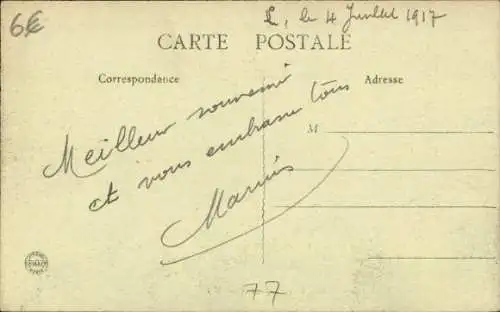 6€
L, le 4 Juillet 1917
CARTE POSTALE
Correspondance
Adresse
Meilleur souvenir
et vous embrasse tous
M
Marius
77